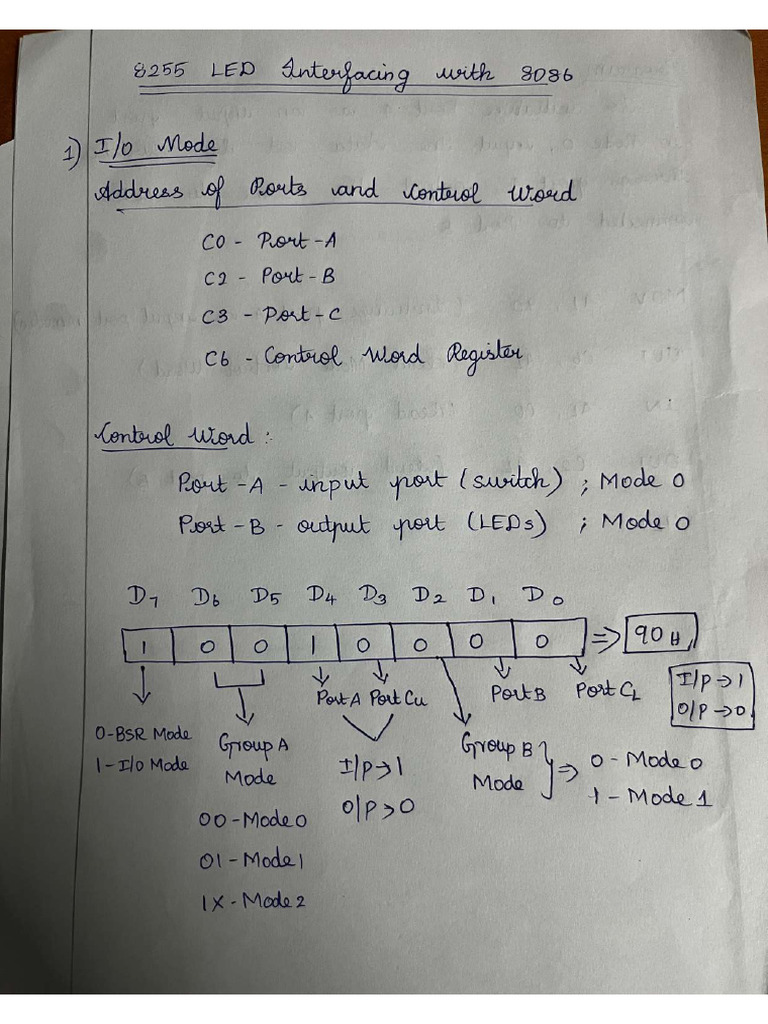 8255 LED Interfacing with 8086
1) I/O Mode
Address of Ports and Control Word
C0 - Port-A
C2 - Port-B
C3 - Port-C
C6 - Control Word Register
Control Word :
Port-A - input port (switch) ; Mode 0
Port-B - output port (LEDs) ; Mode 0
D7 D6 D5 D4 D3 D2 D1 D0
1 0 0 1 0 0 0 0 => 90H
Port A Port CU Port B Port CL
I/P → 1
O/P → 0
0-BSR Mode
1-I/O Mode
Group A
Mode
00-Mode 0
01-Mode 1
1X-Mode 2
I/P → 1
O/P → 0
Group B
Mode
=> 0 - Mode 0
1 - Mode 1